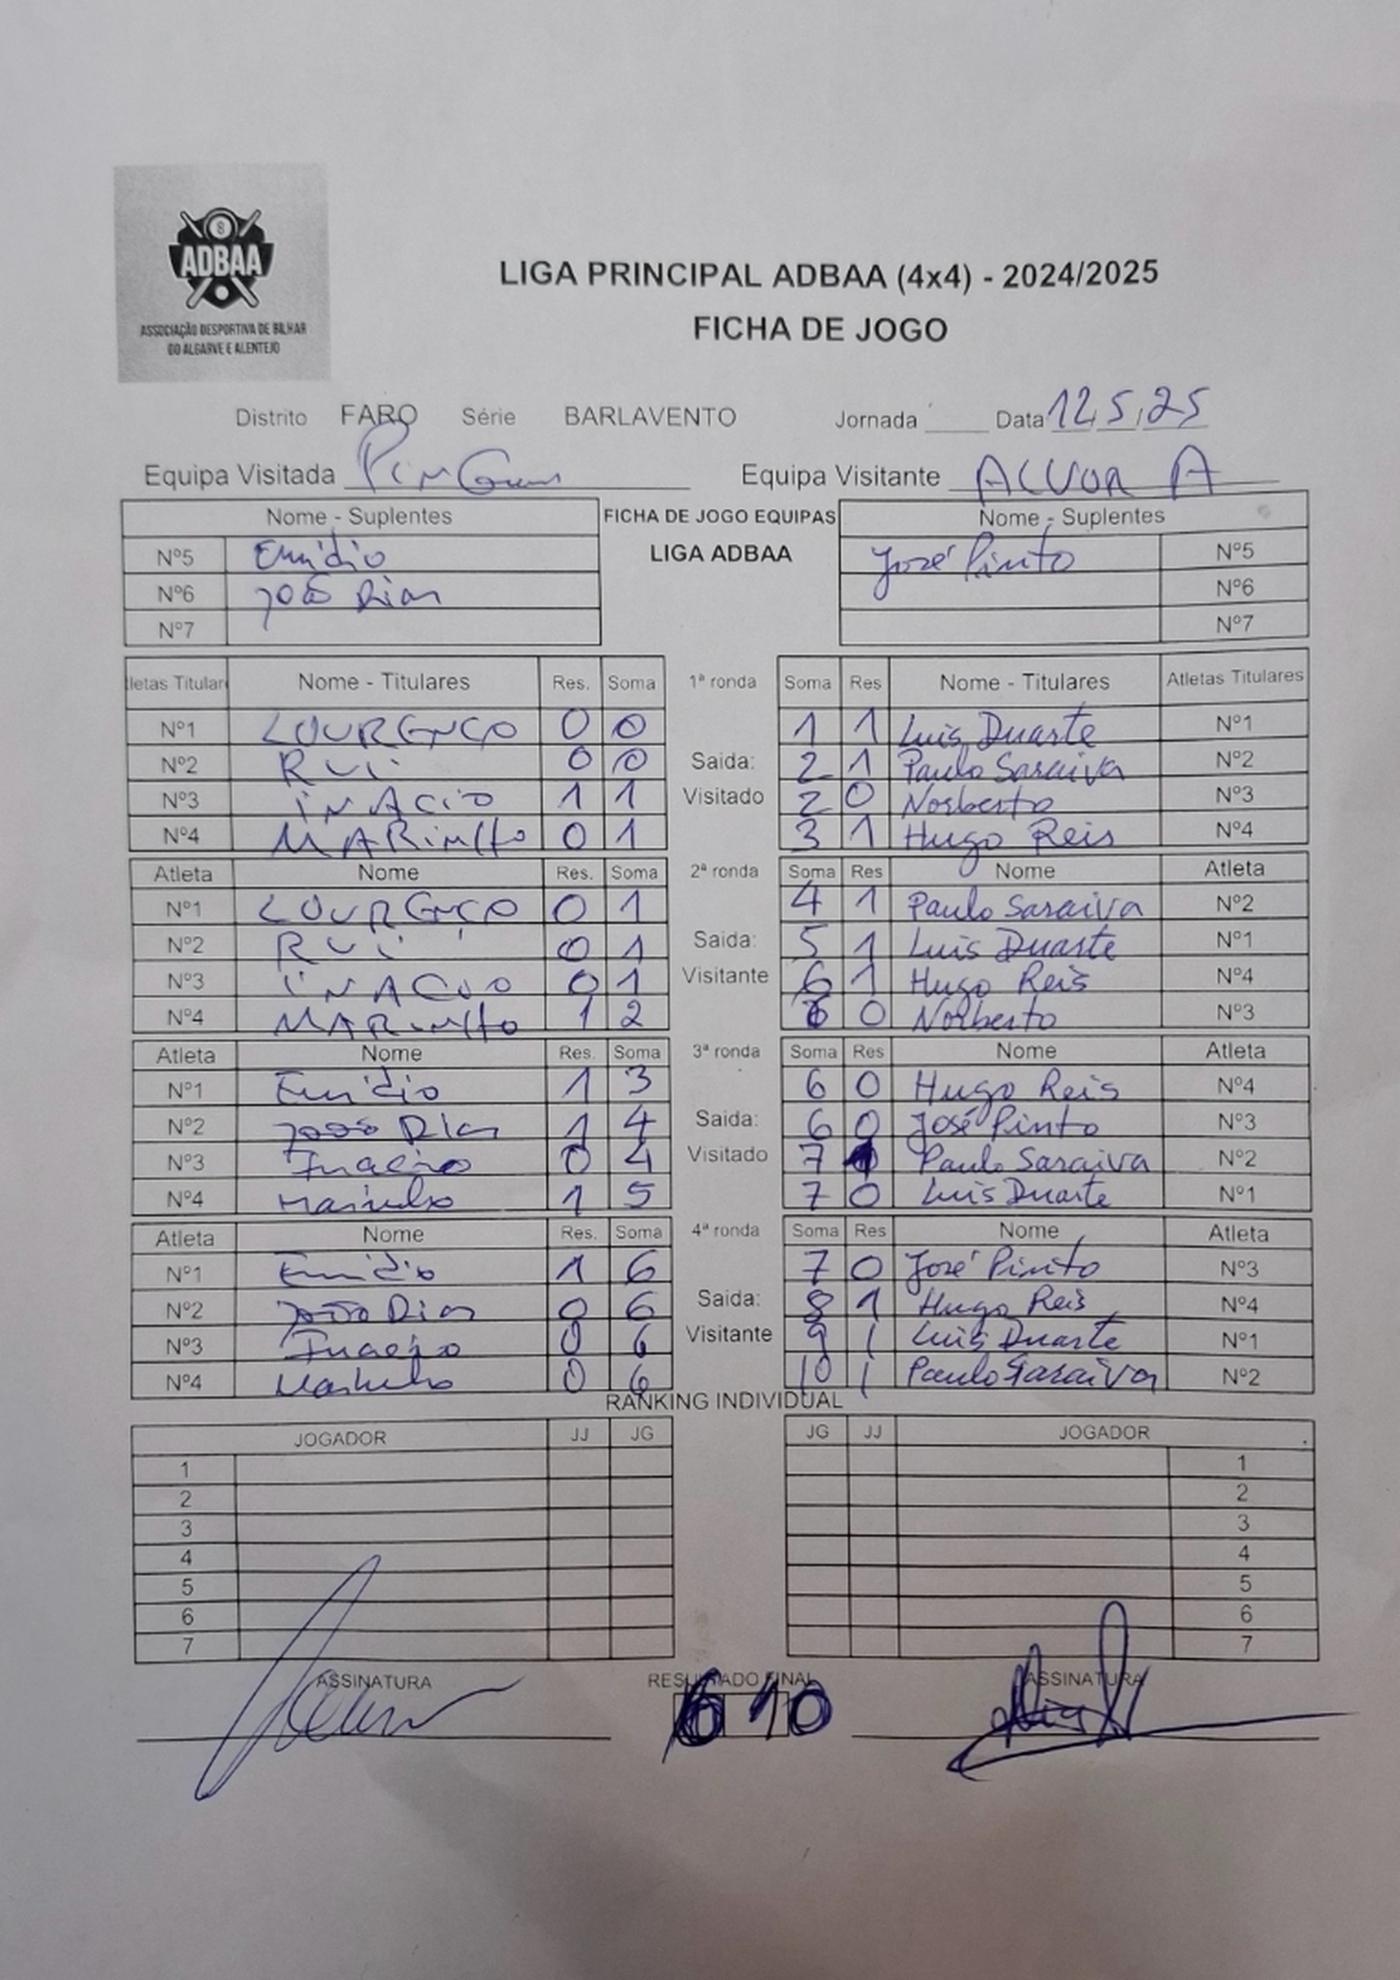 ADBAA
ASSOCIAÇÃO DESPORTIVA DE BILHAR
DO ALGARVE E ALENTEJO
LIGA PRINCIPAL ADBAA (4x4) - 2024/2025
FICHA DE JOGO
Distrito FARO Série BARLAVENTO Jornada ____ Data 12/5/25
Equipa Visitada Equipa Visitante ALVOR A
Nome - Suplentes FICHA DE JOGO EQUIPAS Nome - Suplentes
Nº5 Emídio LIGA ADBAA José Pinto Nº5
Nº6 João Dias Nº6
Nº7 Nº7
tletas Titulare Nome - Titulares Res. Soma 1ª ronda Soma Res Nome - Titulares Atletas Titulares
Nº1 LOURENÇO 0 0 1 1 Luis Duarte Nº1
Nº2 RUI 0 0 Saida: 2 1 Paulo Saraiva Nº2
Nº3 INACIO 1 1 Visitado 2 0 Norberto Nº3
Nº4 MARINHO 0 1 3 1 Hugo Reis Nº4
Atleta Nome Res. Soma 2ª ronda Soma Res Nome Atleta
Nº1 LOURENÇO 0 1 4 1 Paulo Saraiva Nº2
Nº2 RUI 0 1 Saida: 5 1 Luis Duarte Nº1
Nº3 INACIO 0 1 Visitante 6 1 Hugo Reis Nº4
Nº4 MARINHO 1 2 6 0 Norberto Nº3
Atleta Nome Res. Soma 3ª ronda Soma Res Nome Atleta
Nº1 Emídio 1 3 6 0 Hugo Reis Nº4
Nº2 João Dias 1 4 Saida: 6 0 José Pinto Nº3
Nº3 Inacio 0 4 Visitado 7 1 Paulo Saraiva Nº2
Nº4 Marinho 1 5 7 0 Luis Duarte Nº1
Atleta Nome Res. Soma 4ª ronda Soma Res Nome Atleta
Nº1 Emídio 1 6 7 0 José Pinto Nº3
Nº2 João Dias 0 6 Saida: 8 1 Hugo Reis Nº4
Nº3 Inacio 0 6 Visitante 9 1 Luis Duarte Nº1
Nº4 Marinho 0 6 10 1 Paulo Saraiva Nº2
RANKING INDIVIDUAL
JOGADOR JJ JG JG JJ JOGADOR
1 1
2 2
3 3
4 4
5 5
6 6
7 7
ASSINATURA RESULTADO FINAL ASSINATURA
6 10